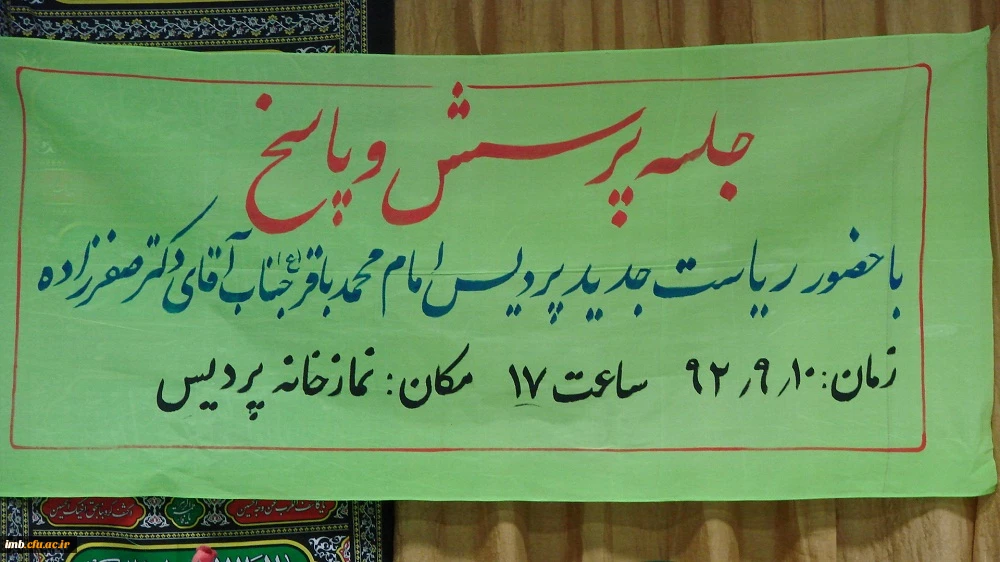 جلسه پرسش و پاسخ
با حضور ریاست جدید پردیس امام محمد باقر (ع) جناب آقای دکتر صفرزاده
زمان: ۹۲٫۹٫۱۰ ساعت ۱۷ مکان: نمازخانه پردیس
imb.cfu.ac.ir